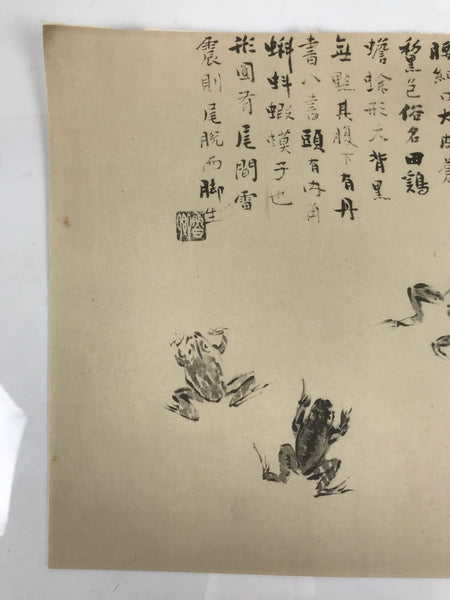 腰細口大
黧色俗名田鷄
蟾蜍形大背黑
無點其腹下有丹
書八書頭有肉角
蝌蚪蝦蟆子也
形圓有尾聞雷
震則尾脫而脚生